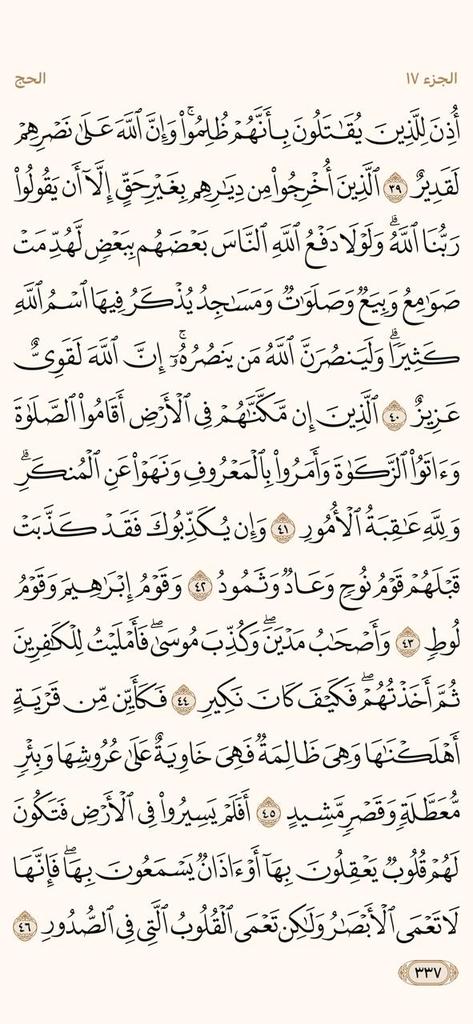 الجزء ١٧
الحج
أُذِنَ لِلَّذِينَ يُقَٰتَلُونَ بِأَنَّهُمْ ظُلِمُوا۟ ۚ وَإِنَّ ٱللَّهَ عَلَىٰ نَصْرِهِمْ
لَقَدِيرٌ ٣٩ ٱلَّذِينَ أُخْرِجُوا۟ مِن دِيَٰرِهِم بِغَيْرِ حَقٍّ إِلَّآ أَن يَقُولُوا۟
رَبُّنَا ٱللَّهُ ۗ وَلَوْلَا دَفْعُ ٱللَّهِ ٱلنَّاسَ بَعْضَهُم بِبَعْضٍ لَّهُدِّمَتْ
صَوَٰمِعُ وَبِيَعٌ وَصَلَوَٰتٌ وَمَسَٰجِدُ يُذْكَرُ فِيهَا ٱسْمُ ٱللَّهِ
كَثِيرًا ۗ وَلَيَنصُرَنَّ ٱللَّهُ مَن يَنصُرُهُۥٓ ۚ إِنَّ ٱللَّهَ لَقَوِىٌّ
عَزِيزٌ ٤٠ ٱلَّذِينَ إِن مَّكَّنَّٰهُمْ فِى ٱلْأَرْضِ أَقَامُوا۟ ٱلصَّلَوٰةَ
وَءَاتَوُا۟ ٱلزَّكَوٰةَ وَأَمَرُوا۟ بِٱلْمَعْرُوفِ وَنَهَوْا۟ عَنِ ٱلْمُنكَرِ ۗ
وَلِلَّهِ عَٰقِبَةُ ٱلْأُمُورِ ٤١ وَإِن يُكَذِّبُوكَ فَقَدْ كَذَّبَتْ
قَبْلَهُمْ قَوْمُ نُوحٍ وَعَادٌ وَثَمُودُ ٤٢ وَقَوْمُ إِبْرَٰهِيمَ وَقَوْمُ
لُوطٍ ٤٣ وَأَصْحَٰبُ مَدْيَنَ ۖ وَكُذِّبَ مُوسَىٰ ۖ فَأَمْلَيْتُ لِلْكَٰفِرِينَ
ثُمَّ أَخَذْتُهُمْ ۖ فَكَيْفَ كَانَ نَكِيرِ ٤٤ فَكَأَيِّن مِّن قَرْيَةٍ
أَهْلَكْنَٰهَا وَهِىَ ظَالِمَةٌ فَهِىَ خَاوِيَةٌ عَلَىٰ عُرُوشِهَا وَبِئْرٍ
مُّعَطَّلَةٍ وَقَصْرٍ مَّشِيدٍ ٤٥ أَفَلَمْ يَسِيرُوا۟ فِى ٱلْأَرْضِ فَتَكُونَ
لَهُمْ قُلُوبٌ يَعْقِلُونَ بِهَآ أَوْ ءَاذَانٌ يَسْمَعُونَ بِهَا ۖ فَإِنَّهَا
لَا تَعْمَى ٱلْأَبْصَٰرُ وَلَٰكِن تَعْمَى ٱلْقُلُوبُ ٱلَّتِى فِى ٱلصُّدُورِ ٤٦
٣٣٧